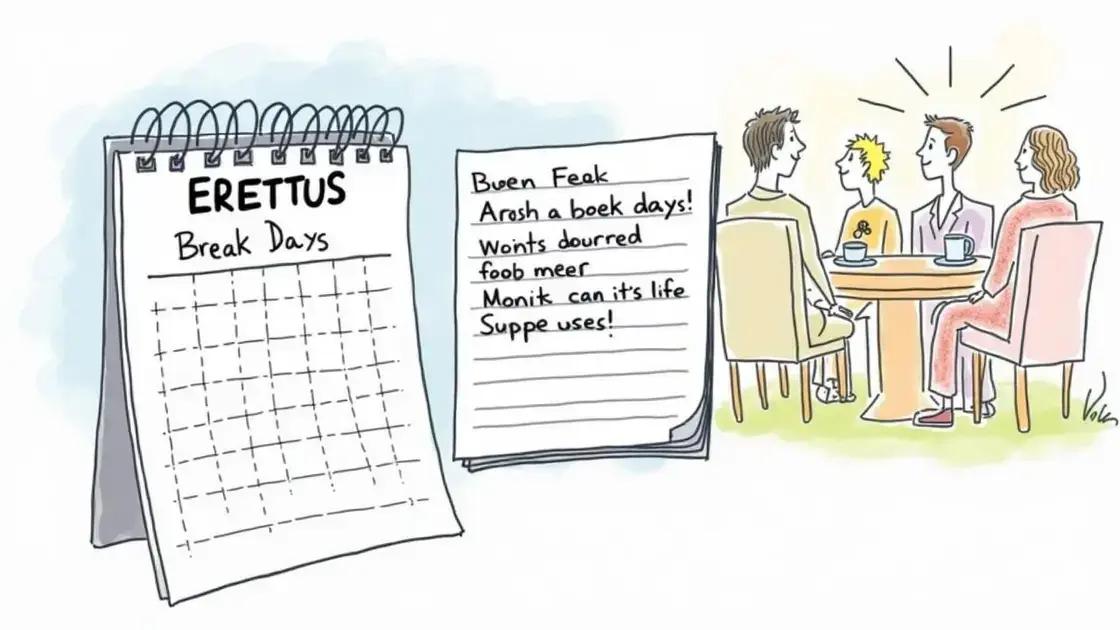 ERETTUS
Break Days
Buen Feak
Arosh a boek days!
Wonts dourred
foob meer
Monik can it's life
Suppe uses!